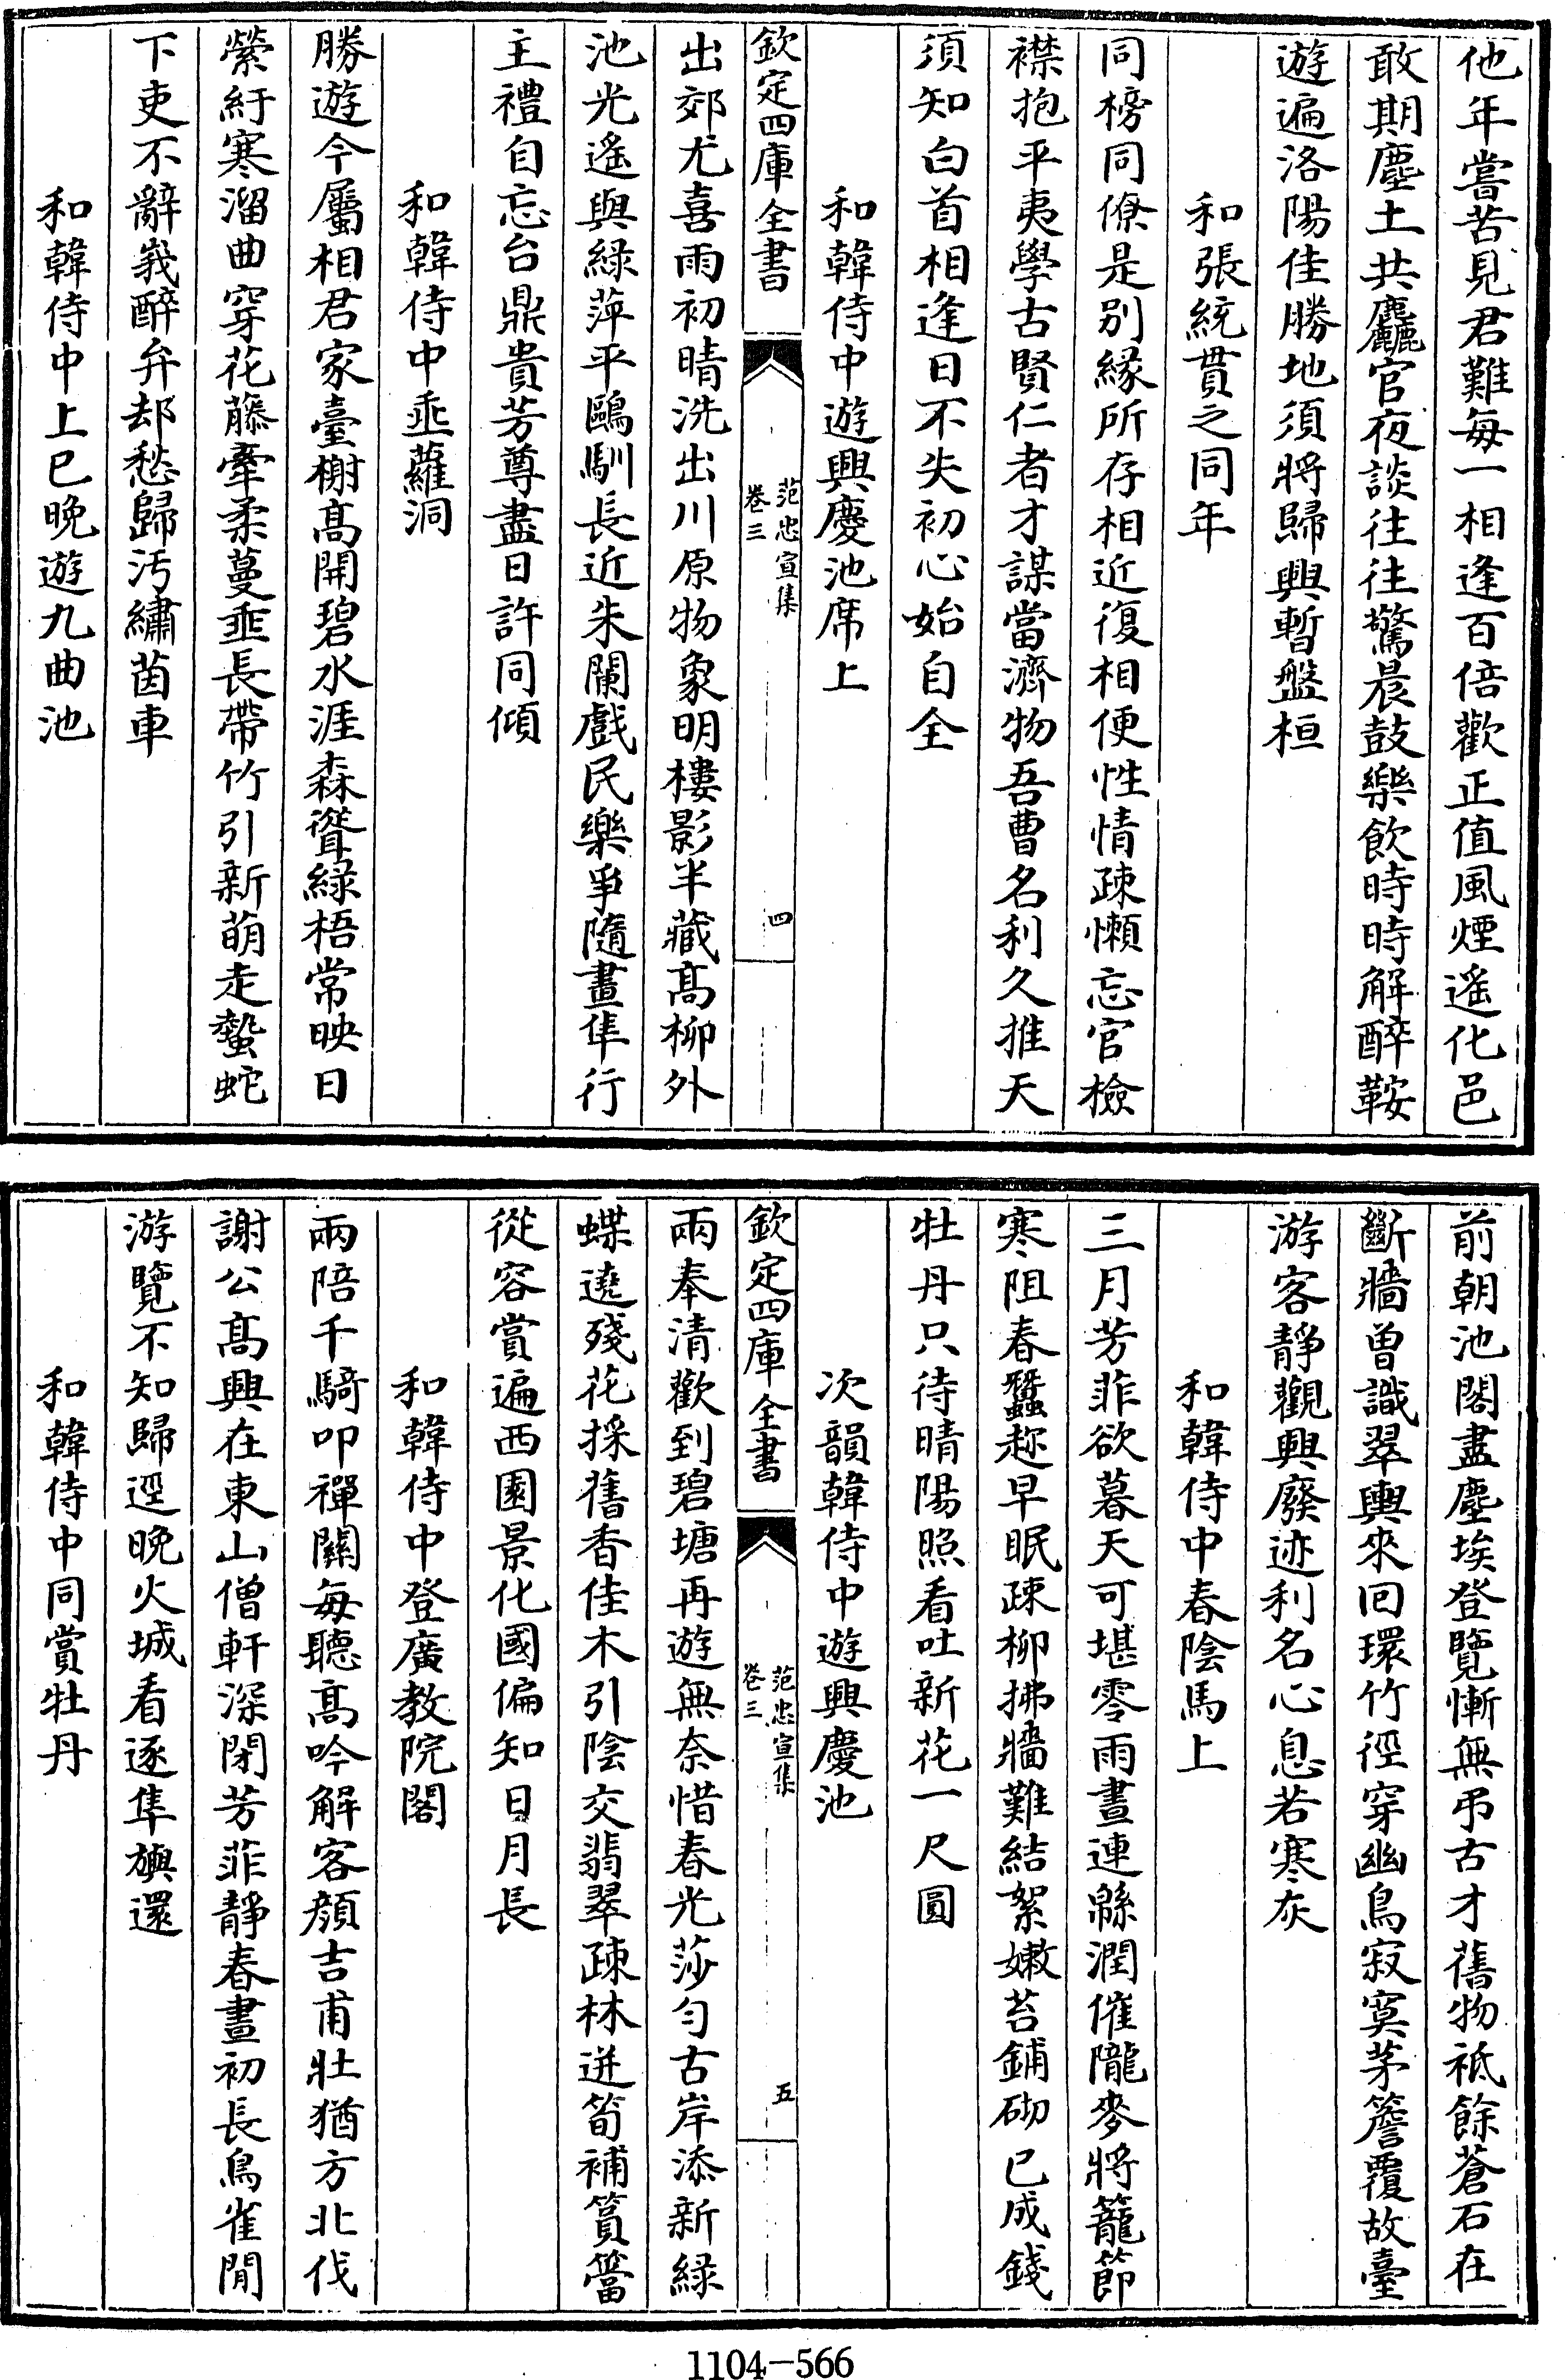 他年嘗苦見君難每一相逢百倍歡正值風煙遥化邑
敢期塵土共麤官夜談往往驚晨鼓樂飲時時解醉鞍
遊遍洛陽佳勝地須將歸興暫盤桓
和張統貫之同年
同榜同僚是別縁所存相近復相便性情疎懶忘官檢
襟抱平夷學古賢仁者才謀當濟物吾曹名利久推天
須知白首相逢日不失初心始自全
和韓侍中遊興慶池席上
欽定四庫全書
范忠宣集
卷三
四
出郊尤喜雨初晴洗出川原物象明樓影半藏髙柳外
池光遥與緑萍平鷗馴長近朱闌戲民樂爭隨畫隼行
主禮自忘台鼎貴芳尊盡日許同傾
和韓侍中垂蘿洞
勝遊今屬相君家臺榭髙開碧水涯森聳緑梧常映日
縈紆寒溜曲穿花藤牽柔蔓垂長帶竹引新萌走蟄蛇
下吏不辭峩醉弁却愁歸汚繡茵車
和韓侍中上巳晚遊九曲池
前朝池閣盡塵埃登覽慚無弔古才舊物祗餘蒼石在
斷牆曽識翠輿來囘環竹徑穿幽鳥寂寞茅簷覆故臺
游客靜觀興廢迹利名心息若寒灰
和韓侍中春陰馬上
三月芳菲欲暮天可堪零雨晝連緜潤催隴麥將籠節
寒阻春蠶趂早眠疎柳拂牆難結絮嫩苔鋪砌已成錢
牡丹只待晴陽照看吐新花一尺圓
次韻韓侍中遊興慶池
欽定四庫全書
范忠宣集
卷三
五
兩奉清歡到碧塘再遊無奈惜春光莎勻古岸添新緑
蝶遶殘花採舊香佳木引陰交翡翠疎林迸筍補篔簹
從容賞遍西園景化國偏知日月長
和韓侍中登廣教院閣
兩陪千騎叩禪闗每聽髙吟解客顔吉甫壯猶方北伐
謝公髙興在東山僧軒深閉芳菲靜春晝初長鳥雀閒
游覽不知歸逕晚火城看逐隼旟還
和韓侍中同賞牡丹
1104-566